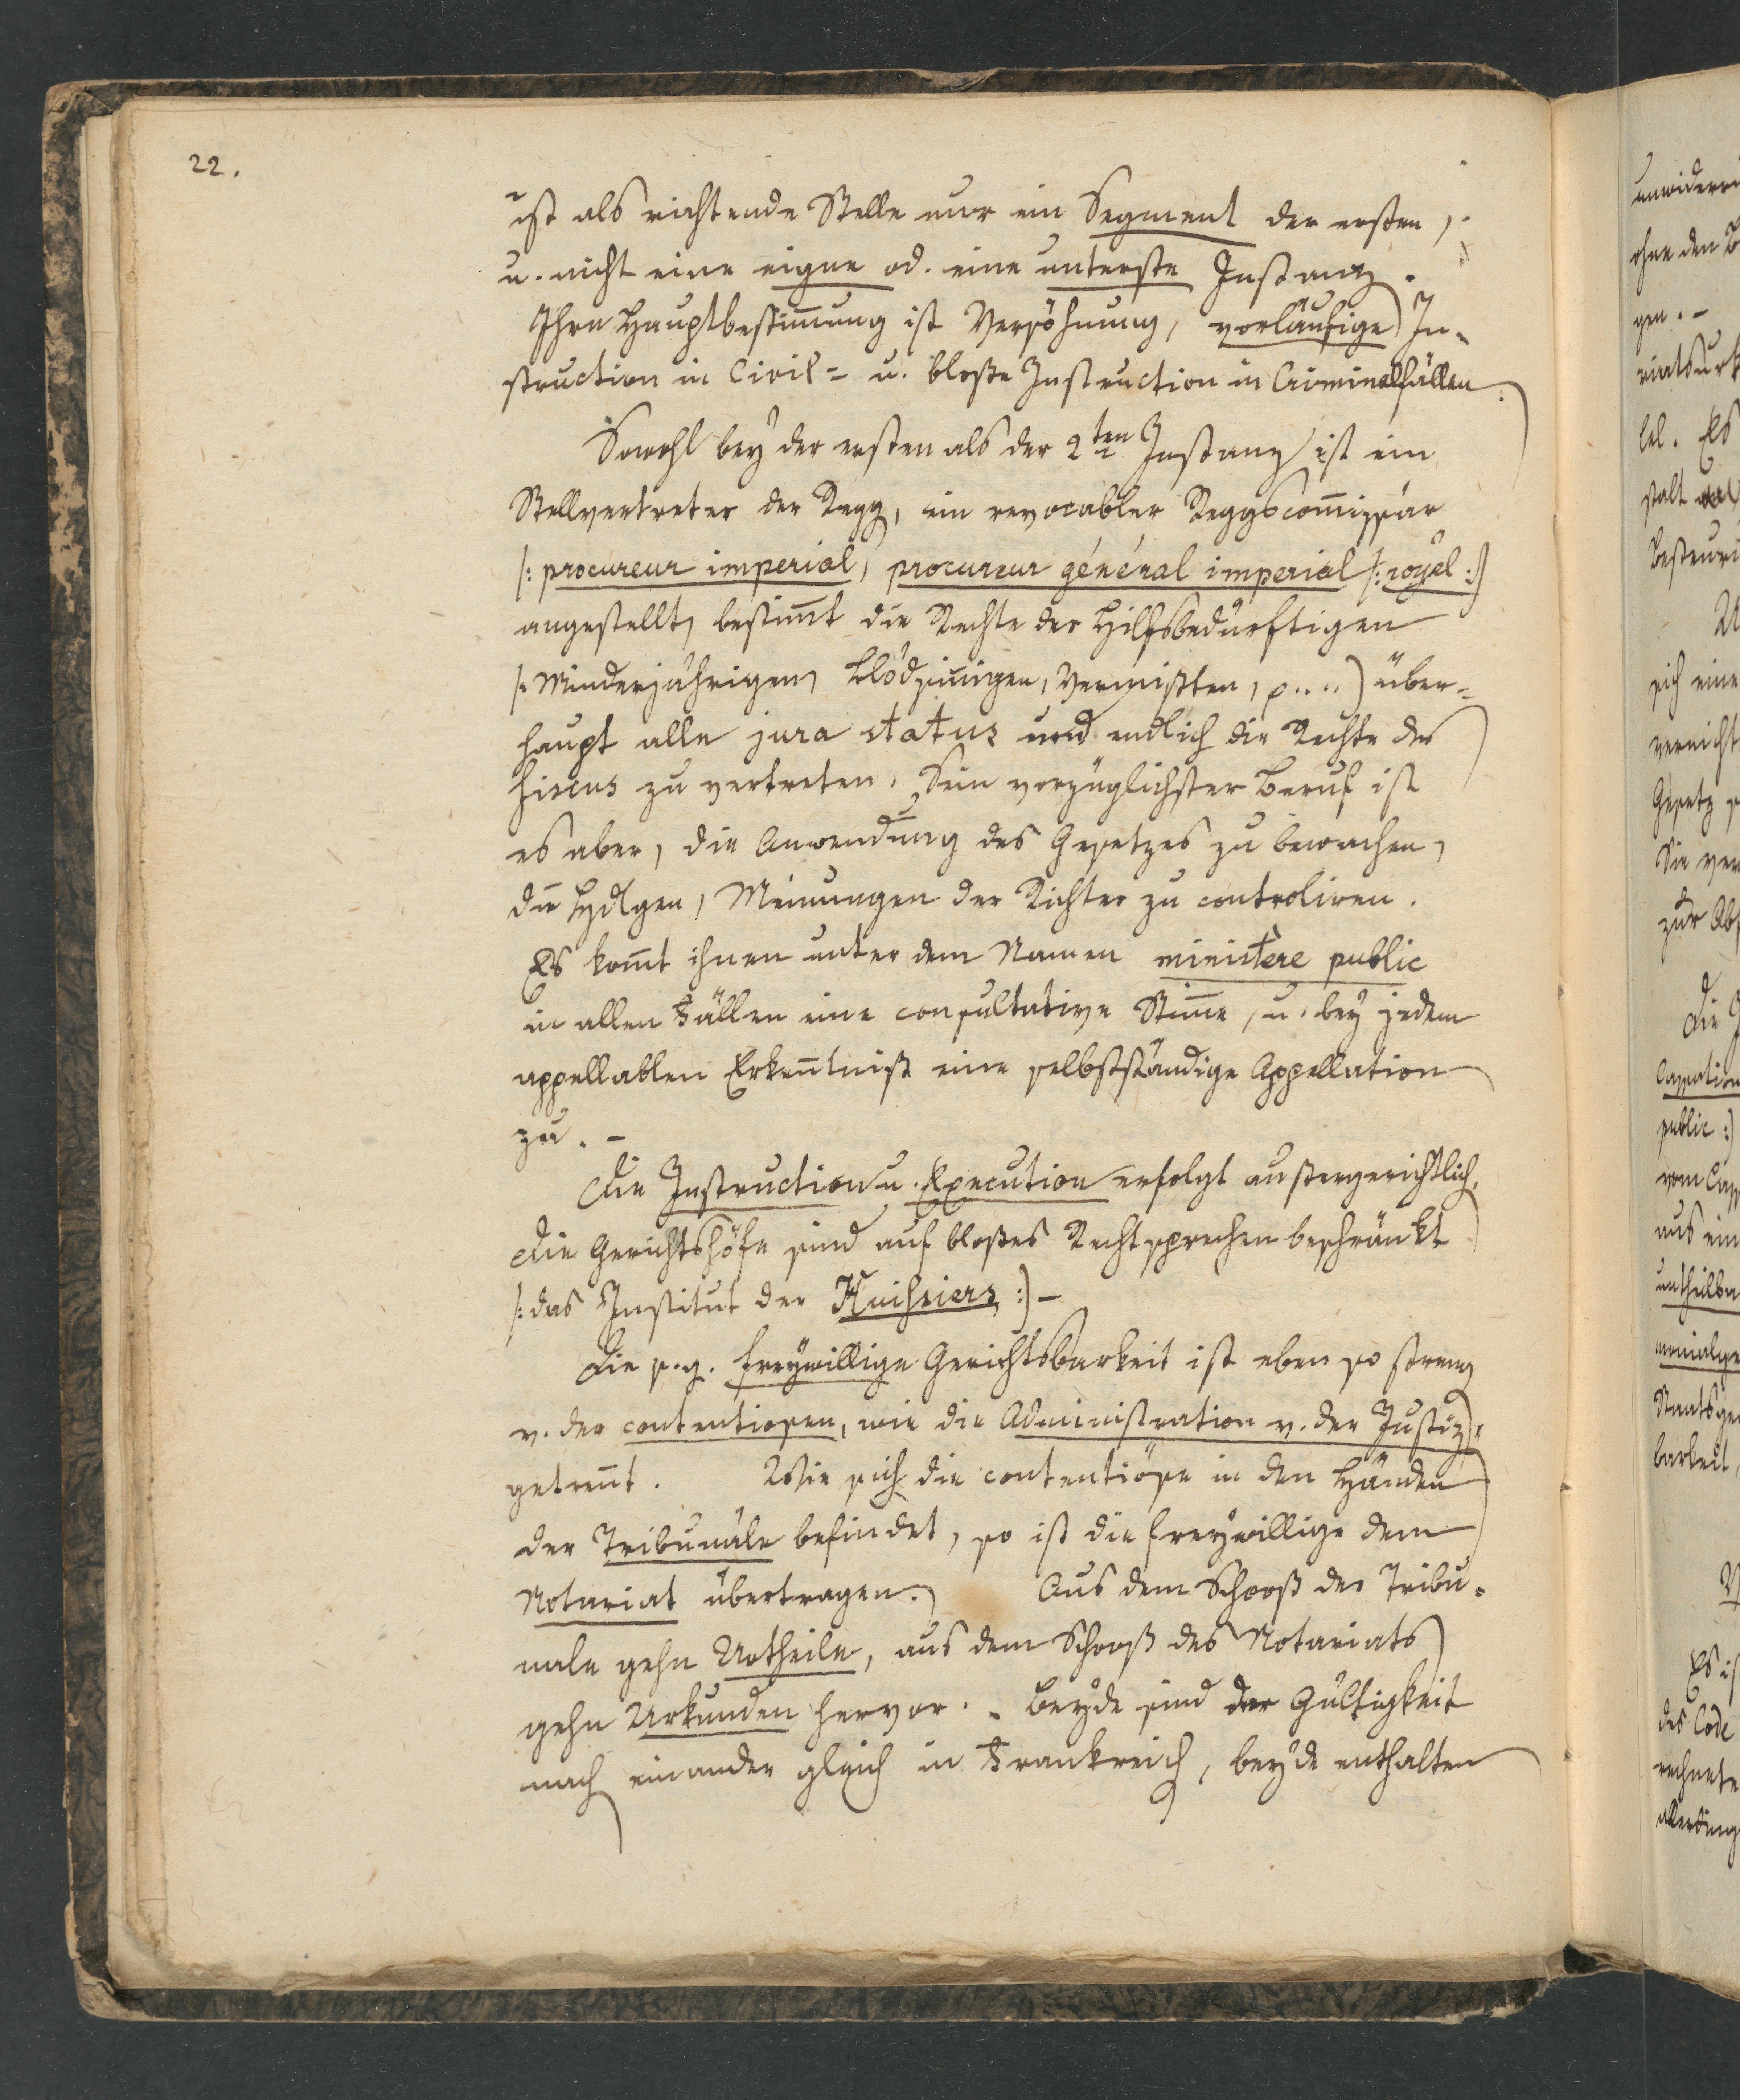 22.
ist als richtende Stelle nur ein Segment der ersten,
u. nicht eine eigne od. eine unterste Instanz.
Ihre Hauptbestim̄ung ist Versöhnung, vorläufige In-
struction in Civil- u. bloße Instruction in Criminalfällen.
Sowohl bey der ersten als der 2ten Instanz ist ein
Stellvertreter der Regg, ein revocabler Reggscom̄issär
/: procureur imperial, procureur général imperial /: royal :/
angestellt, bestim̄t die Rechte der Hilfsbedürftigen
/: Minderjährigen, Blödsin̄igen, Vermißten, p....) über-
haupt alle jura status und endlich die Rechte des
Fiscus zu vertreten. Sein vorzüglichster Beruf ist
es aber, die Anwendung des Gesetzes zu bewachen,
die Meinungen der Richter zu controliren.
Es kom̄t ihnen unter dem Namen ministere public
in allen Fällen eine consultative Stim̄e, u. bey jedem
appellablen Erken̄tniß eine selbstständige Appellation
zu. –
Die Instruction u. Execution erfolgt außergerichtlich,
die Gerichtshöfe sind auf bloßes Rechtsprechen beschränkt
/: das Institut der Huissiers :/ –
Die s. g. freywillige Gerichtsbarkeit ist eben so streng
v. der contentiosen, wie die Administration v. der Justiz,
getren̄t. Wie sich die contentiöse in den Händen
der Tribunäle befindet, so ist die freywillige dem
Notariat übertragen. Aus dem Schooß der Tribu-
nale gehn Urtheile, aus dem Schooß des Notariats
gehn Urkunden hervor. – Beyde sind der Gültigkeit
nach einander gleich in Frankreich, beyde enthalten
ohne den
gen. –
Es
sich eine
Gesetz
Sie
zur
Die
Cassation
public :/
vom
uns ein
Staats
barkeit,
Es
des Code